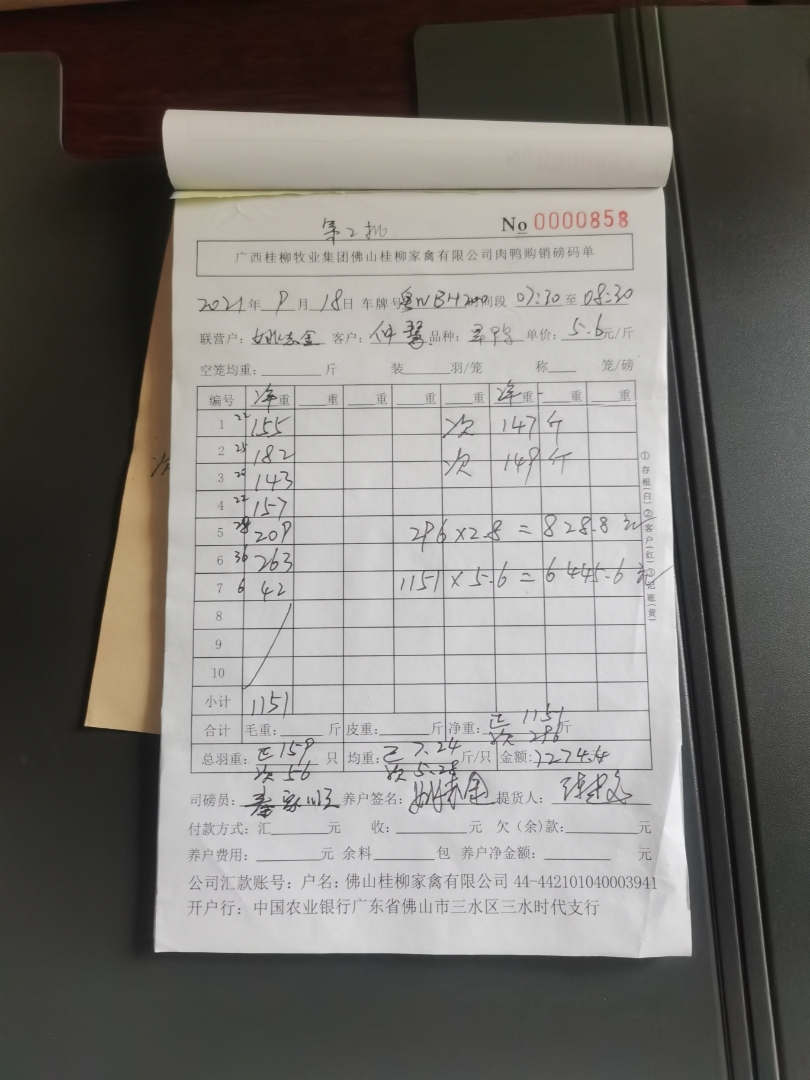 第2批
No 0000858
广西桂柳牧业集团佛山桂柳家禽有限公司肉鸭购销磅码单
2021年 9月 18日 车牌号 粤WBH 时间段 07:30 至 08:30
联营户: 姚志金 客户: 仲琴 品种: 单价: 5.6元/斤
空笼均重: 斤 装 羽/笼 称 笼/磅
编号 净重 重 重 重 重 净重 重 重
1 22 155 次 147 斤
2 25 182 次 149 斤
3 20 143
4 22 157
5 28 209 296×2.8=828.8元
6 36 263
7 6 42 1151×5.6=6445.6元
8
9
10
小计 1151
合计 毛重: 斤 皮重: 斤 净重: 正 1151 斤
次 296
总羽重: 正 159 只 均重: 正 7.24 斤/只 金额: 7274.4
次 56 次 5.28
司磅员: 秦家顺 养户签名: 姚志金 提货人:
付款方式: 汇 元 收: 元 欠(余)款: 元
养户费用: 元 余料 包 养户净金额: 元
公司汇款账号: 户名: 佛山桂柳家禽有限公司 44-442101040003941
开户行: 中国农业银行广东省佛山市三水区三水时代支行
①存根(白)②客户(红)③记账(黄)